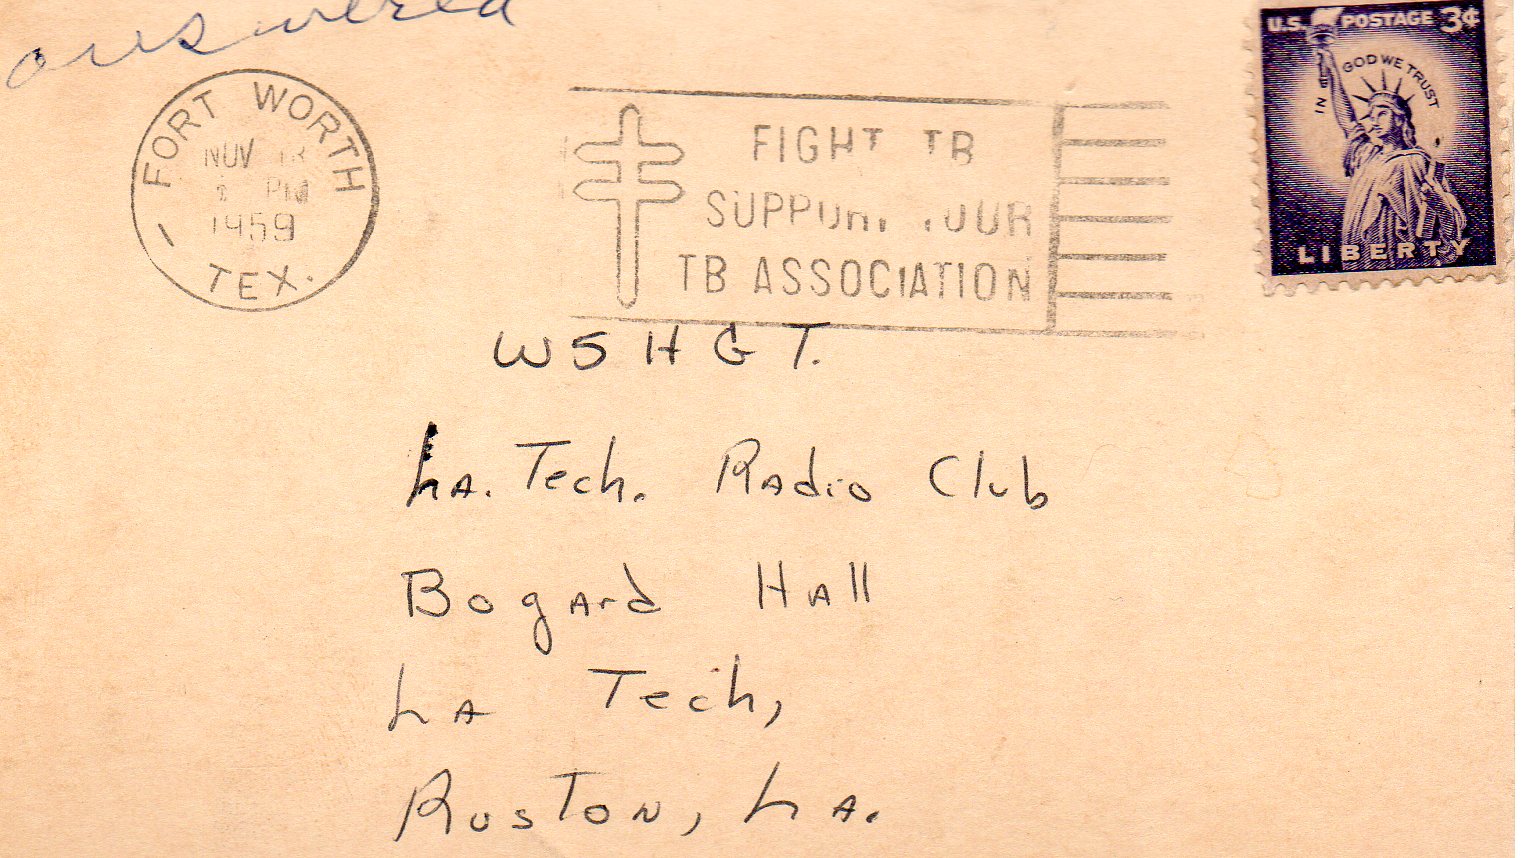 answered
FORT WORTH
NOV
PM
1959
TEX.
FIGHT TB
SUPPORT YOUR
TB ASSOCIATION
U.S. POSTAGE 3¢
IN GOD WE TRUST
LIBERTY
W5HGT.
La. Tech. Radio Club
Bogard Hall
La Tech,
Ruston, La.